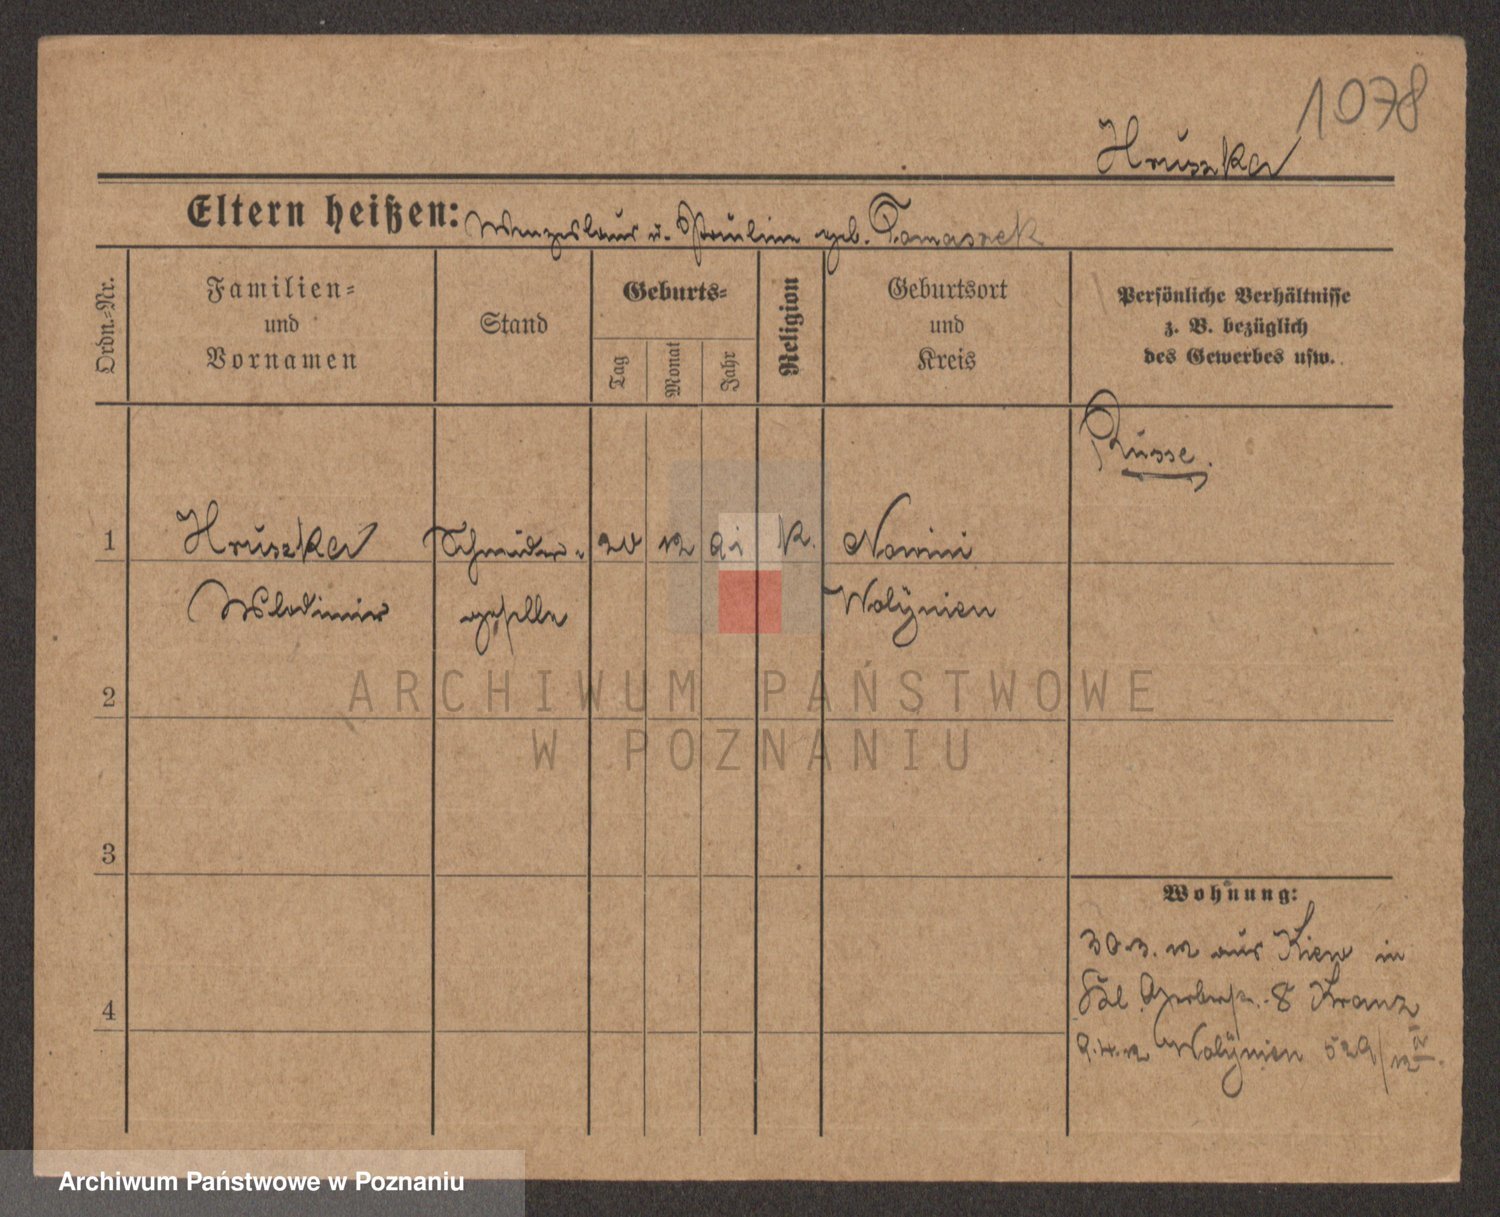 1078
Hruszka
Eltern heißen: Wenzeslaus u. Pauline geb. Tomaszek
Ordn.-Nr.
Familien-
und
Vornamen
Stand
Geburts-
Tag
Monat
Jahr
Religion
Geburtsort
und
Kreis
Persönliche Verhältnisse
z. B. bezüglich
des Gewerbes usw.
Russe.
1 Hruszka Schneider- 20 12 91 k. Nowini
Wladimir geselle Wolÿnien
2
3
4
Wohnung:
30.3.12 aus Kiew in
Gerberstr. 8 Kranz
9.4.12 Wolÿnien 529/12
ARCHIWUM PAŃSTWOWE
W POZNANIU
Archiwum Państwowe w Poznaniu